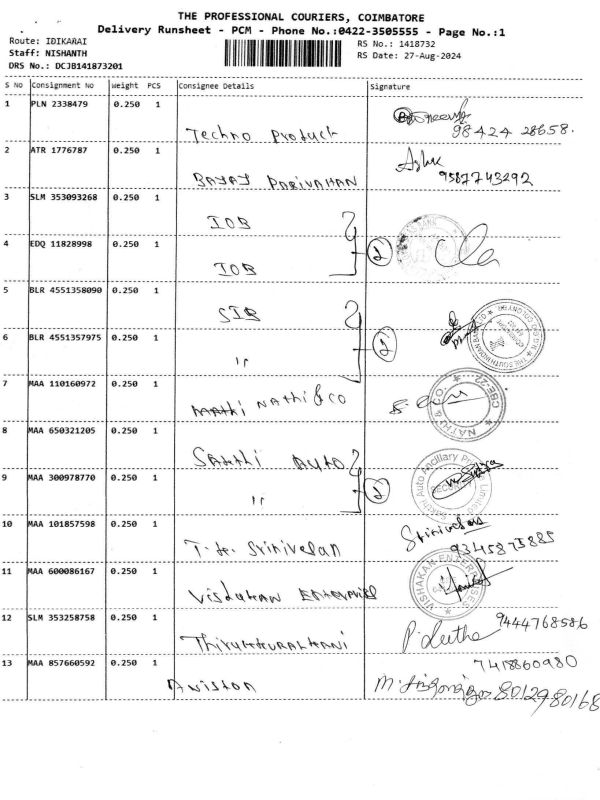 THE PROFESSIONAL COURIERS, COIMBATORE
Delivery Runsheet - PCM - Phone No.:0422-3505555 - Page No.:1
Route: IDIKARAI RS No.: 1418732
Staff: NISHANTH RS Date: 27-Aug-2024
DRS No.: DCJB141873201
S No Consignment No Weight PCS Consignee Details Signature
1 PLN 2338479 0.250 1
Techno Product 98424 28658.
2 ATR 1776787 0.250 1
BAJAJ PARIVAHAN 9587743292
3 SLM 353093268 0.250 1
IOB
4 EDQ 11828998 0.250 1 2
IOB
5 BLR 4551358090 0.250 1
SIB
6 BLR 4551357975 0.250 1 2
"
7 MAA 110160972 0.250 1
Nathi & CO NATHI & CO. CBE-22
8 MAA 650321205 0.250 1
Sakthi Auto
9 MAA 300978770 0.250 1 2
" Sakthi Auto Ancillary Private Limited
10 MAA 101857598 0.250 1 Srinivelan
T.K. Srinivelan 9345875885
11 MAA 600086167 0.250 1
VISHAKAN ENTERPRISES
12 SLM 353258758 0.250 1 9444768586
P. Leetha
13 MAA 857660592 0.250 1 7418860980
Aniston 8012980168